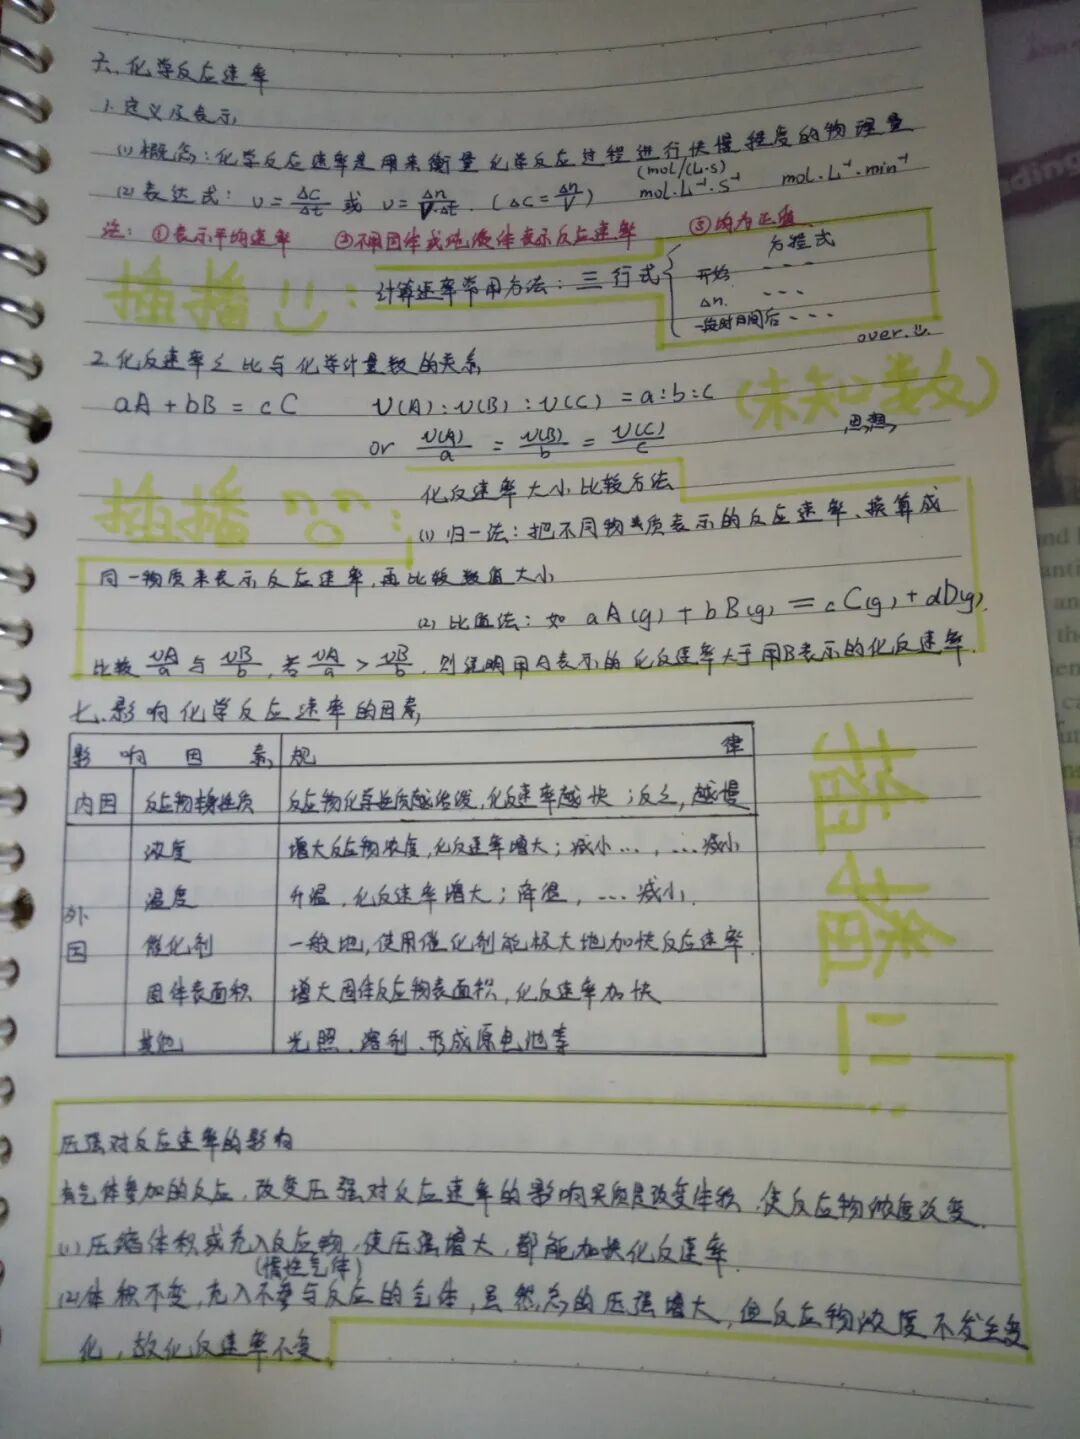 六、化学反应速率
1. 定义及表示
(1) 概念：化学反应速率是用来衡量化学反应过程进行快慢程度的物理量
(mol/(L·s)
(2) 表达式：υ = Δc/Δt 或 υ = Δn/V·Δt . (Δc = Δn/V) mol·L⁻¹·s⁻¹ mol·L⁻¹·min⁻¹
注：①表示平均速率 ②不用固体或纯液体表示反应速率 ③均为正值
插播 : 计算速率常用方法：三行式 { 方程式
开始 - - -
Δn. - - -
一段时间后 - - -
over.
2. 化反速率之比与化学计量数的关系
aA + bB = cC υ(A) : υ(B) : υ(C) = a : b : c (未知数)
or υ(A)/a = υ(B)/b = υ(C)/c 思想
插播 : 化反速率大小比较方法
(1) 归一法：把不同物质表示的反应速率、换算成
同一物质来表示反应速率，再比较数值大小
(2) 比值法：如 aA(g) + bB(g) = cC(g) + dD(g).
比较 υA/a 与 υB/b，若 υA/a > υB/b，则说明用A表示的化反速率大于用B表示的化反速率.
七、影响化学反应速率的因素
影响因素 规律
内因 反应物本身性质 反应物化学性质越活泼，化反速率越快；反之，越慢
浓度 增大反应物浓度，化反速率增大；减小…，…减小
外因 温度 升温，化反速率增大；降温，…减小.
催化剂 一般地，使用催化剂能极大地加快反应速率.
固体表面积 增大固体反应物表面积，化反速率加快
其他 光照、溶剂、形成原电池等
插播
压强对反应速率的影响
有气体参加的反应，改变压强对反应速率的影响实质是改变体积，使反应物浓度改变.
(1) 压缩体积或充入反应物，使压强增大，都能加快化反速率.
(惰性气体)
(2) 体积不变，充入不参与反应的气体，虽然总的压强增大，但反应物浓度不发生变
化，故化反速率不变